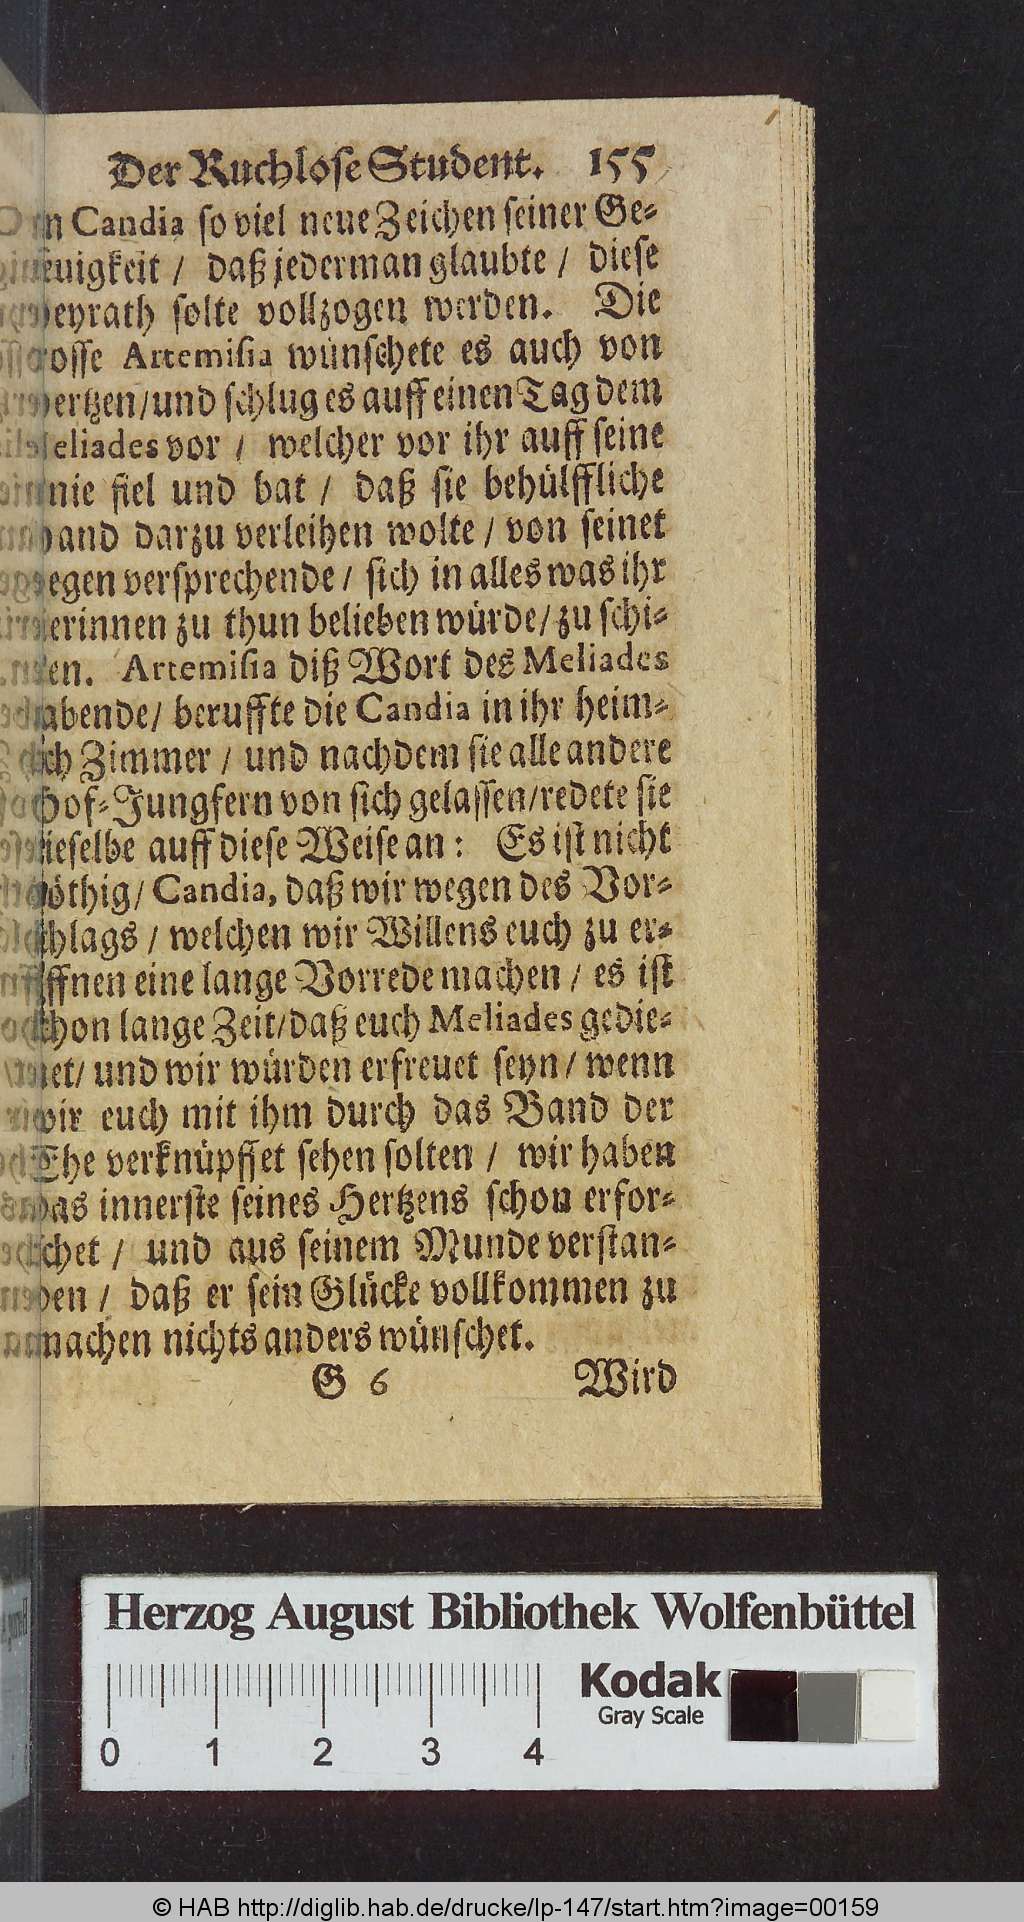 Der Ruchlose Student. 155
Candia so viel neue Zeichen seiner Ge-
neuigkeit / daß jederman glaubte / diese
Heyrath solte vollzogen werden. Die
grosse Artemisia wünschete es auch von
Hertzen / und schlug es auff einen Tag dem
Meliades vor / welcher vor ihr auff seine
Knie fiel und bat / daß sie behülffliche
Hand darzu verleihen wolte / von seinet
wegen versprechende / sich in alles was ihr
erinnen zu thun belieben würde / zu schi-
cken. Artemisia diß Wort des Meliades
habende / beruffte die Candia in ihr heim-
lich Zimmer / und nachdem sie alle andere
Hof-Jungfern von sich gelassen / redete sie
dieselbe auff diese Weise an: Es ist nicht
nöthig / Candia, daß wir wegen des Vor-
schlags / welchen wir Willens euch zu er-
öffnen eine lange Vorrede machen / es ist
schon lange Zeit / daß euch Meliades gedie-
net / und wir würden erfreuet seyn / wenn
wir euch mit ihm durch das Band der
Ehe verknüpffet sehen solten / wir haben
das innerste seines Hertzens schon erfor-
schet / und aus seinem Munde verstan-
den / daß er sein Glücke vollkommen zu
machen nichts anders wünschet.
G 6 Wird
Herzog August Bibliothek Wolfenbüttel
Kodak
Gray Scale
0 1 2 3 4
© HAB http://diglib.hab.de/drucke/lp-147/start.htm?image=00159